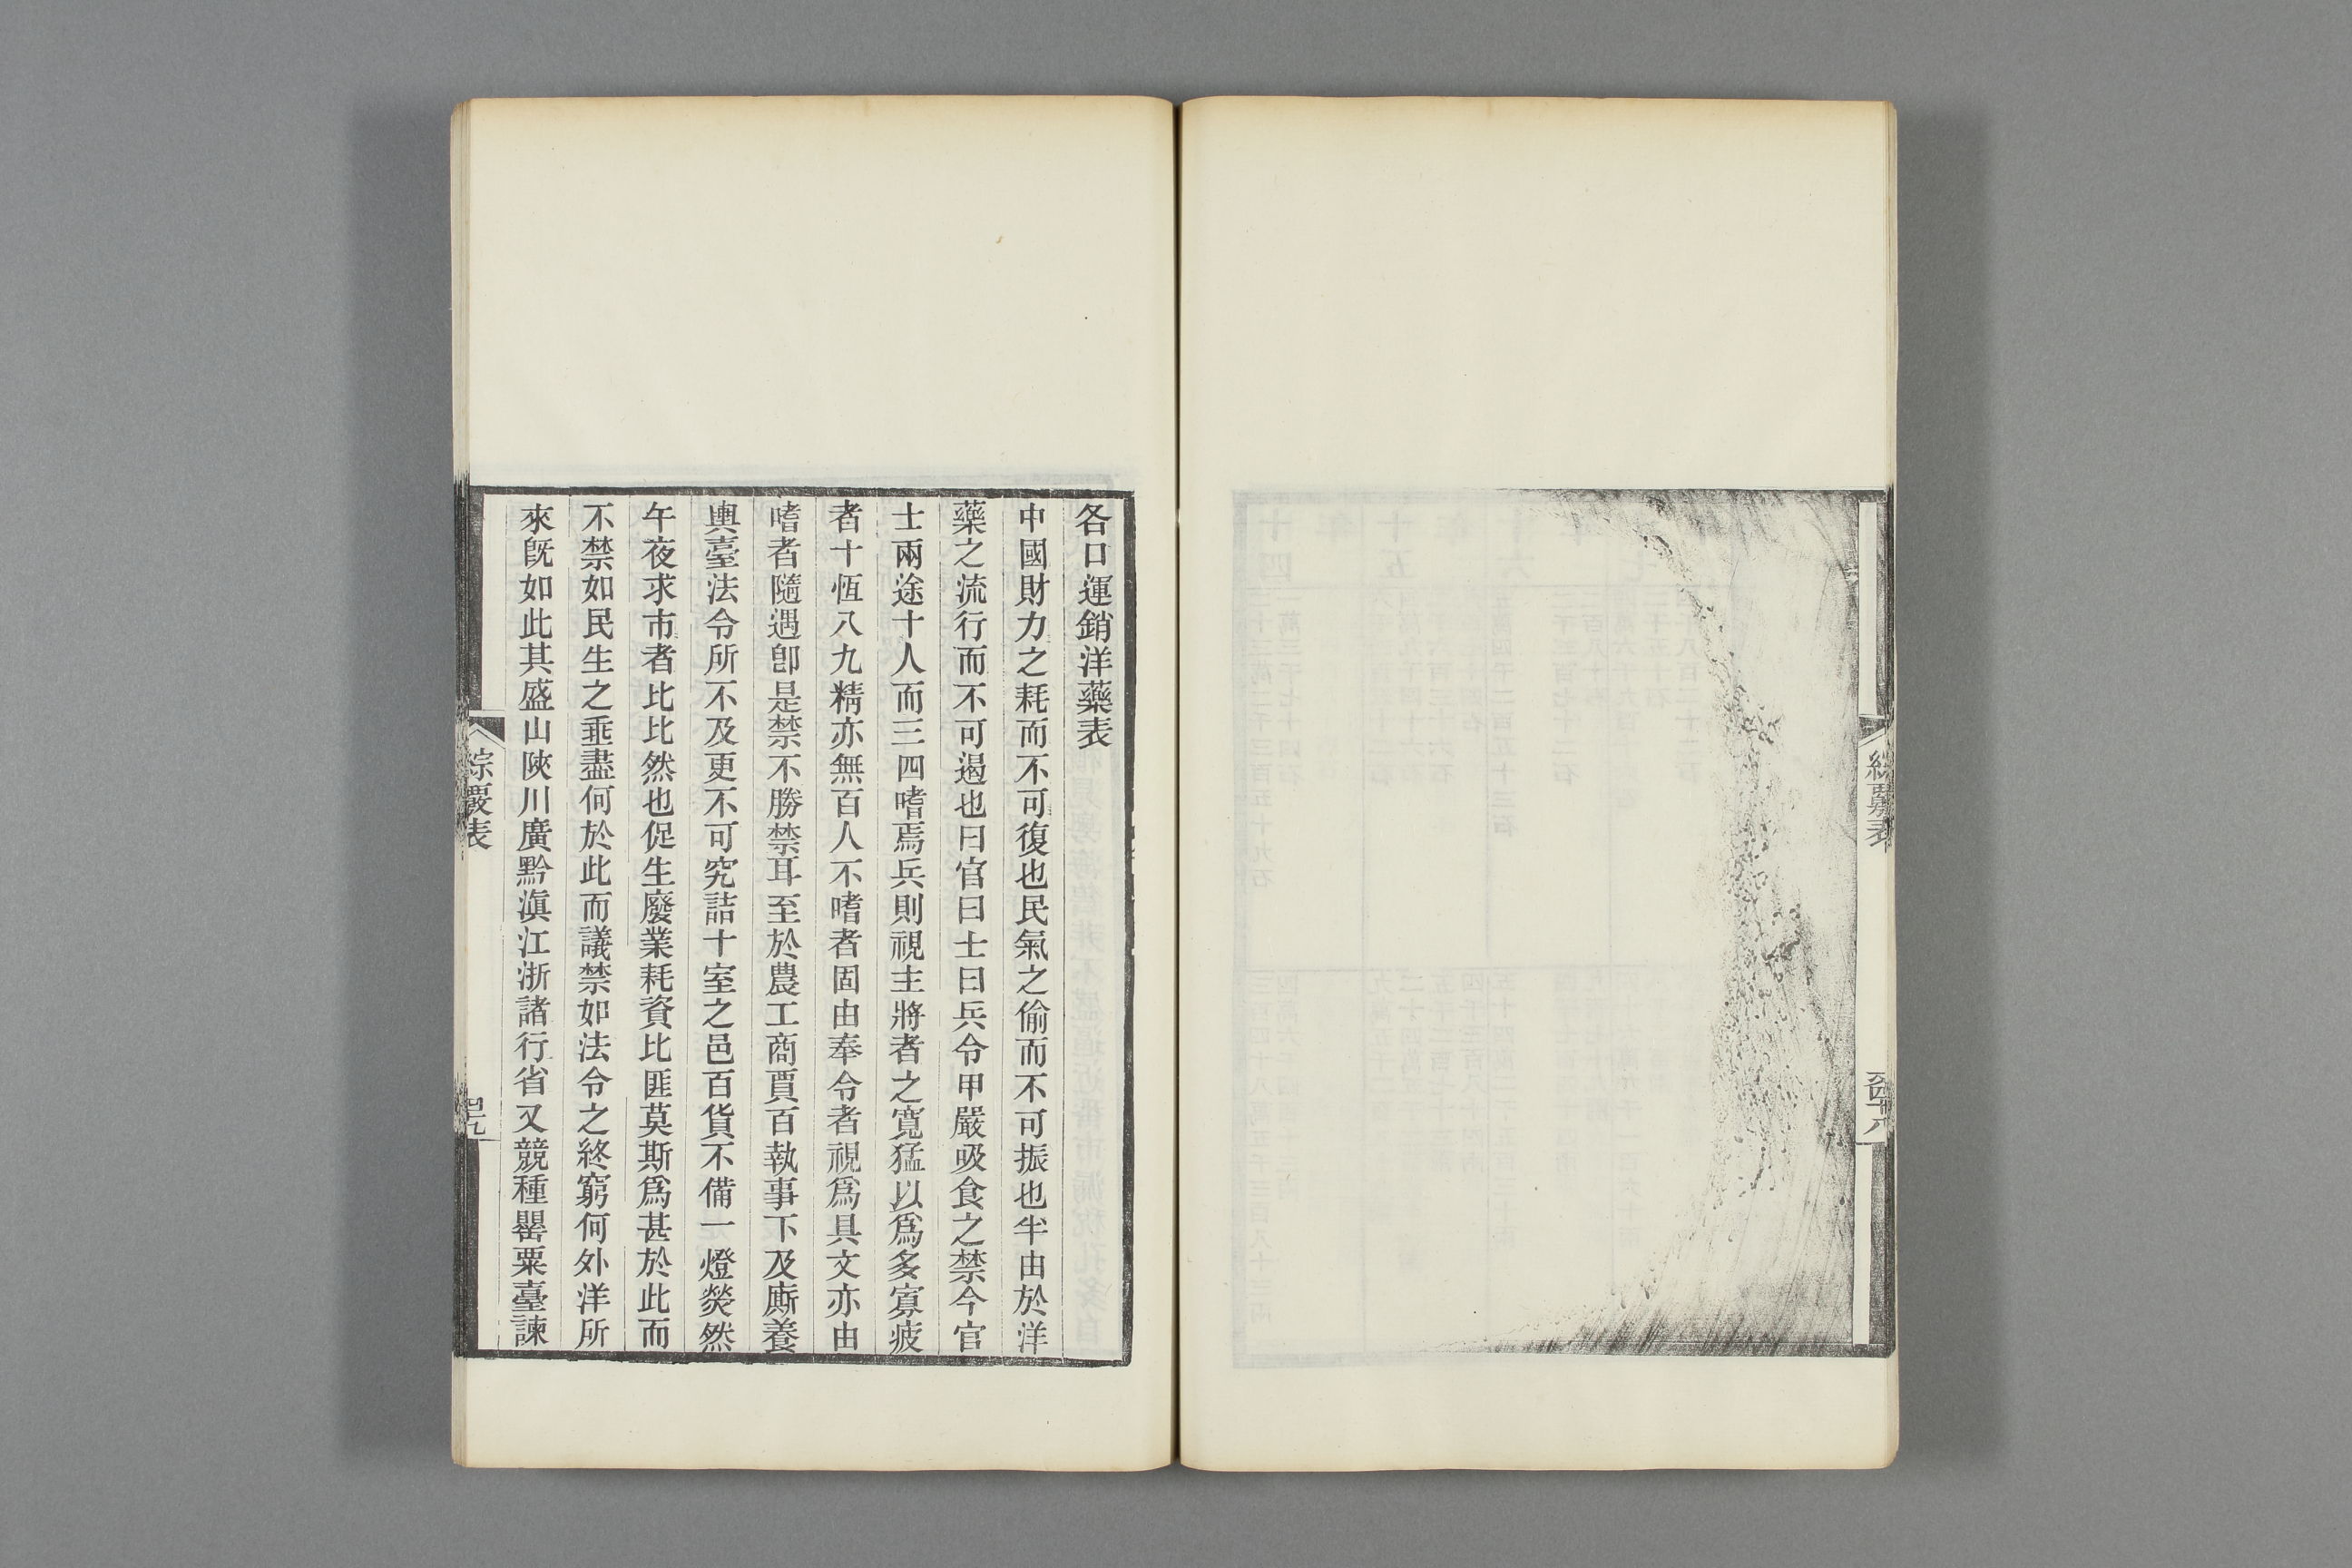 綜覈表
四十八
各口運銷洋藥表
中國財力之耗而不可復也民氣之偷而不可振也半由於洋
藥之流行而不可遏也曰官曰士曰兵令甲嚴吸食之禁今官
士兩途十人而三四嗜焉兵則視主將者之寬猛以爲多寡疲
者十恆八九精亦無百人不嗜者固由奉令者視爲具文亦由
嗜者隨遇卽是禁不勝禁耳至於農工商賈百執事下及廝養
輿臺法令所不及更不可究詰十室之邑百貨不備一燈熒然
午夜求市者比比然也促生廢業耗資比匪莫斯爲甚於此而
不禁如民生之垂盡何於此而議禁如法令之終窮何外洋所
來旣如此其盛山陝川廣黔滇江浙諸行省又競種罌粟臺諫
綜覈表
四十九